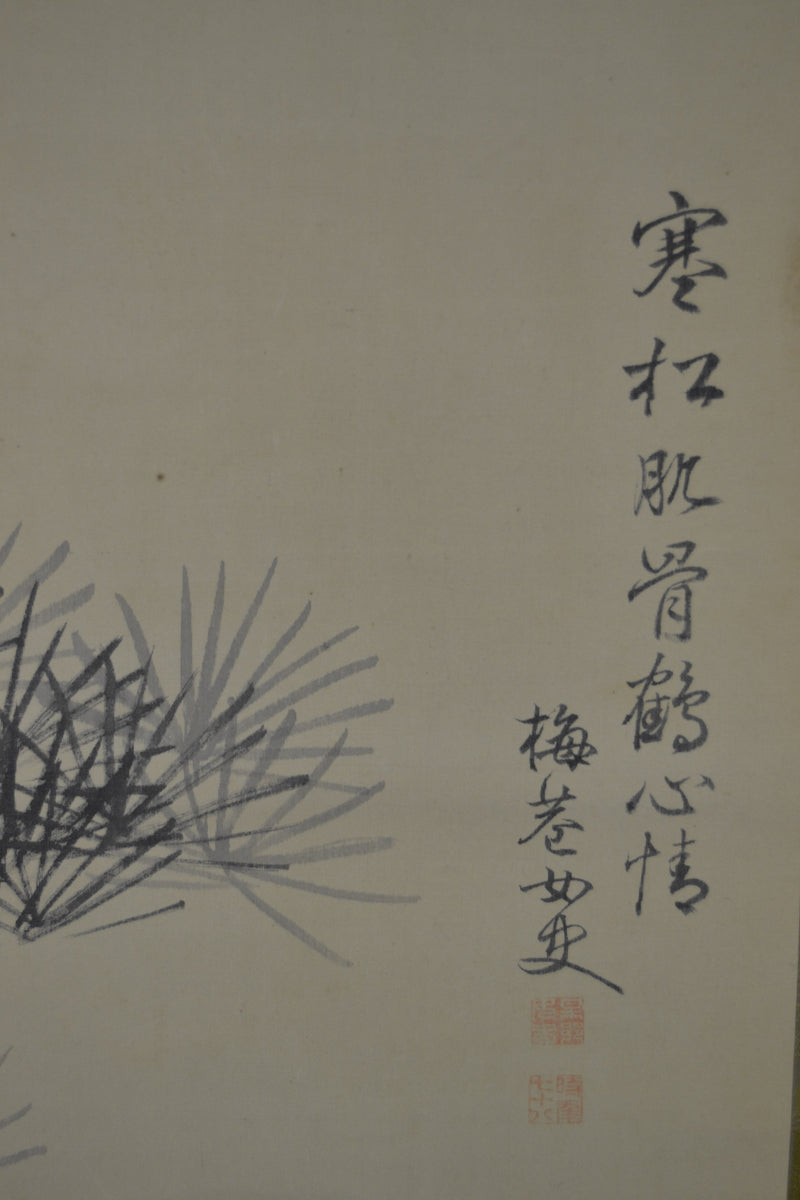 寒松肌骨鶴心情
梅巷女史